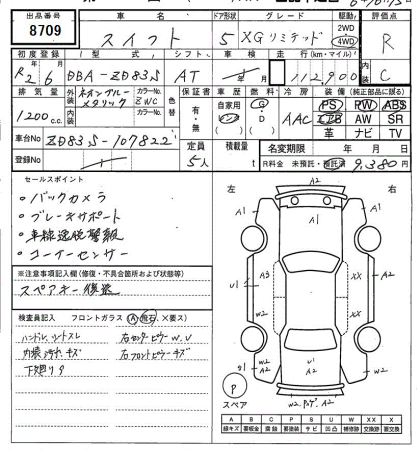 出品番号 車名 ドア形状 グレード 駆動 評価点
8709 スイフト 5 XGリミテッド 2WD 4WD R
初度登録 型式 シフト 車検 走行(km・マイル) C
R2 6 DBA-ZD83S AT 112,900
排気量 外装 ネオンブルーメタリック カラーNo. ZWC 色替 保証書 車歴 燃料 冷房 装備(純正部品に限る)
1200cc 内装 カラーNo. 有・無 自家用 レンタ G D AAC PS PW ABS
エアB AW SR
革 ナビ TV
車台No ZD83S-107822 定員 積載量 名変期限 年 月 日
登録No 5人 t R料金 未預託・預託済 9,380円
セールスポイント
・バックカメラ
・ブレーキサポート
・車線逸脱警報
・コーナーセンサー
※注意事項記入欄(修復・不具合箇所および状態等)
スペアキー
検査員記入 フロントガラス(A・飛石・×要ス)
ハンドル、シートスレ 右センターピラーW、U
内装汚れ、キズ 右フロントピラーキズ
下廻りサ
左 右
A2
A1 A1 A1
A3 XX A2
U1
W2 XX
W2 A2 U1 A2 W2 A2
P
スペア
W2 A2
A B C P S U W XX X
線キズ 要板金 腐蝕 要塗装 サビ 凹凸 補修跡 交換跡 要交換